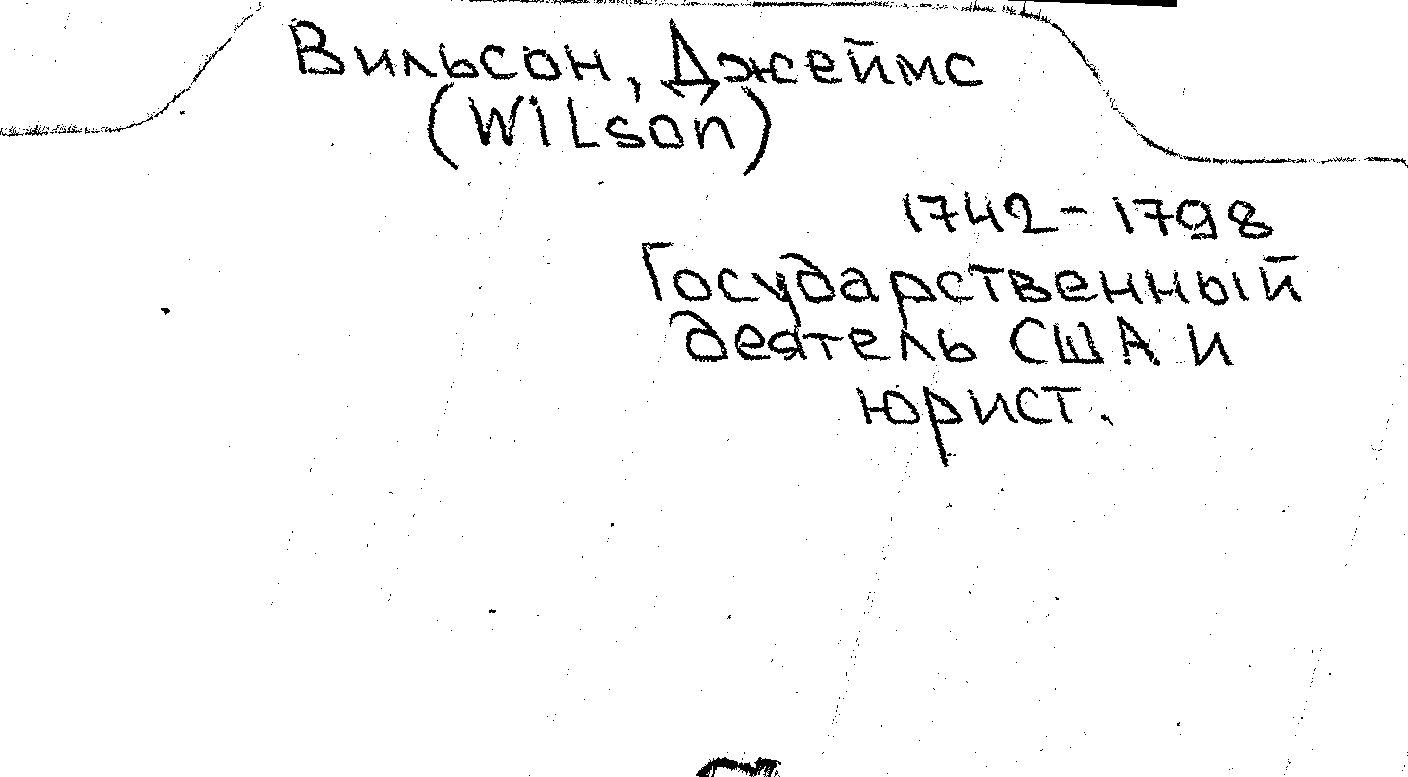 Вильсон, Джеймс
(Wilson)
1742-1798
Государственный
деятель США и
юрист.